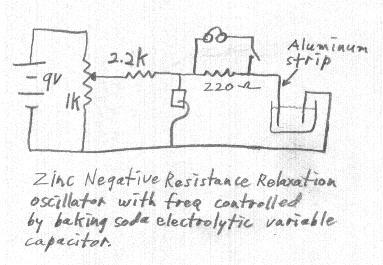 2.2k
Aluminum
strip
9v
1k
220Ω
Zinc Negative Resistance Relaxation
oscillator with freq controlled
by baking soda electrolytic variable
capacitor.